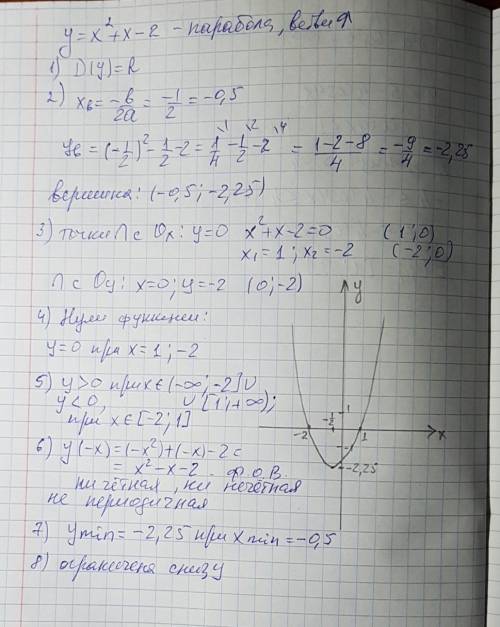 y = x² + x - 2 - парабола, ветви ↑
1) D(y) = R
2) xв = -b/2a = -1/2 = -0,5
yв = (-1/2)² - 1/2 - 2 = 1/4 - 1/2 - 2 = (1-2-8)/4 = -9/4 = -2,25
вершина: (-0,5; -2,25)
3) точки ∩ с Ox: y=0 x²+x-2=0 (1; 0)
x₁ = 1; x₂ = -2 (-2; 0)
∩ с Oy: x=0; y=-2 (0; -2)
4) Нули функции:
y=0 при x=1; -2
5) y>0 при x∈(-∞; -2]∪
y<0, ∪[1; +∞);
при x∈[-2; 1]
6) y(-x) = (-x²)+(-x)-2 =
= x²-x-2. Ф.О.В.
ни чётная, ни нечётная
не периодичная
7) ymin = -2,25 при xmin = -0,5
8) ограничена снизу
y
1
-2
-1/2
1
x
-1
-2,25